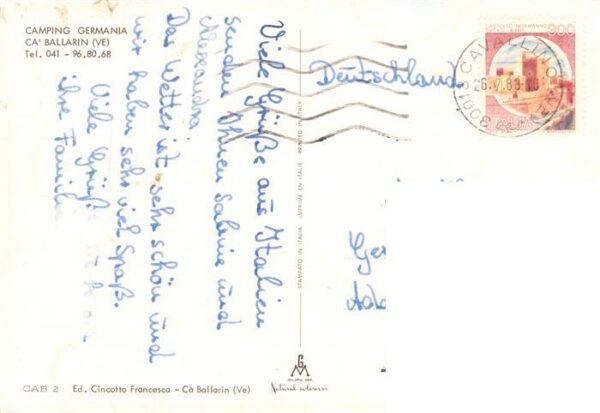 CAMPING GERMANIA
CA' BALLARIN (VE)
Tel. 041 - 96.80.68
Viele Grüße aus Italien
senden Ihnen Sabine und
Alexandra
Das Wetter ist sehr schön und
wir haben sehr viel Spaß.
Viele Grüße
ihre Famili
STAMPATO IN ITALIA IMPRIMÉ EN ITALIE PRINTED IN ITALY
Deutschland
900
30013 CAVALLINO
CAB 2 Ed. Cincotto Francesca - Cà Ballarin (Ve)
G M